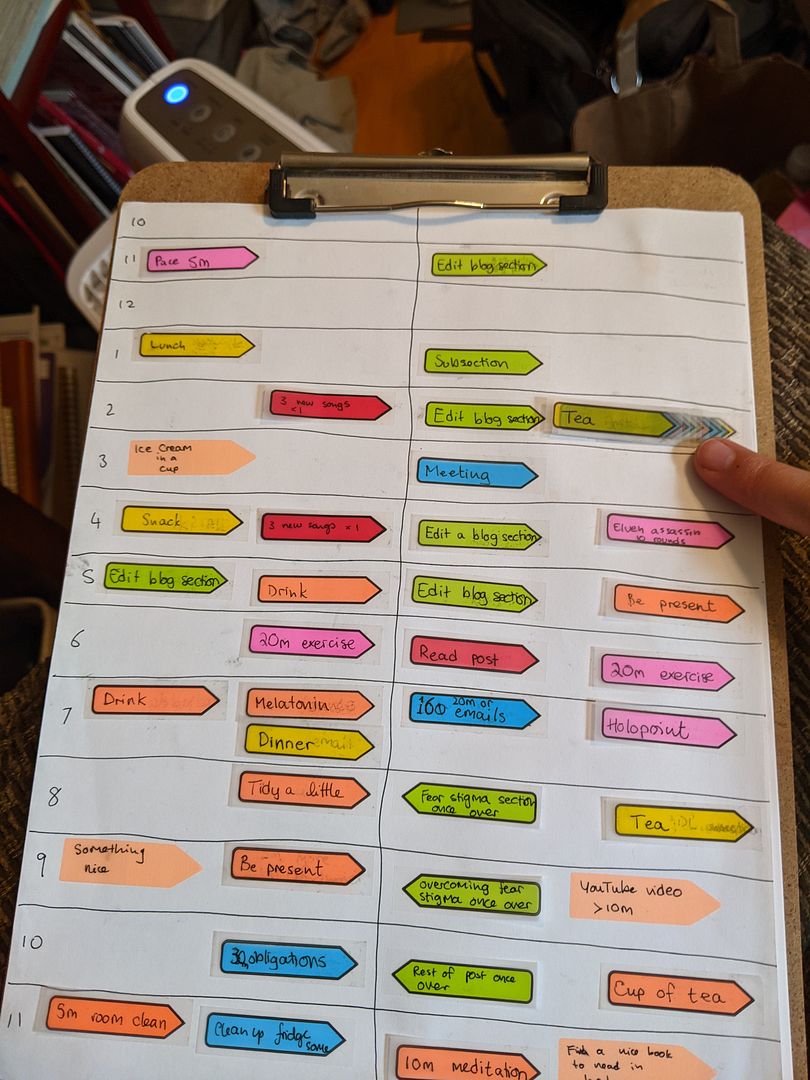 10
11 Pace 5m Edit blog section
12
1 Lunch Subsection
2 3 new songs Edit blog section Tea
×1
3 Ice Cream Meeting
in a
cup
4 Snack 3 new songs ×1 Edit a blog section Elven assassin
10 rounds
5 Edit blog section Drink Edit blog section Be present
6 20m exercise Read post 20m exercise
7 Drink Melatonin 20m or Holopoint
160 emails
Dinner
8 Tidy a little Fear stigma section Tea
once over
9 Something Be present overcoming fear YouTube video
nice stigma once over >10m
10 obligations Rest of post once Cup of tea
over
11 5m room clean Clean up fridge 10m meditation Find a nice book
some to read in